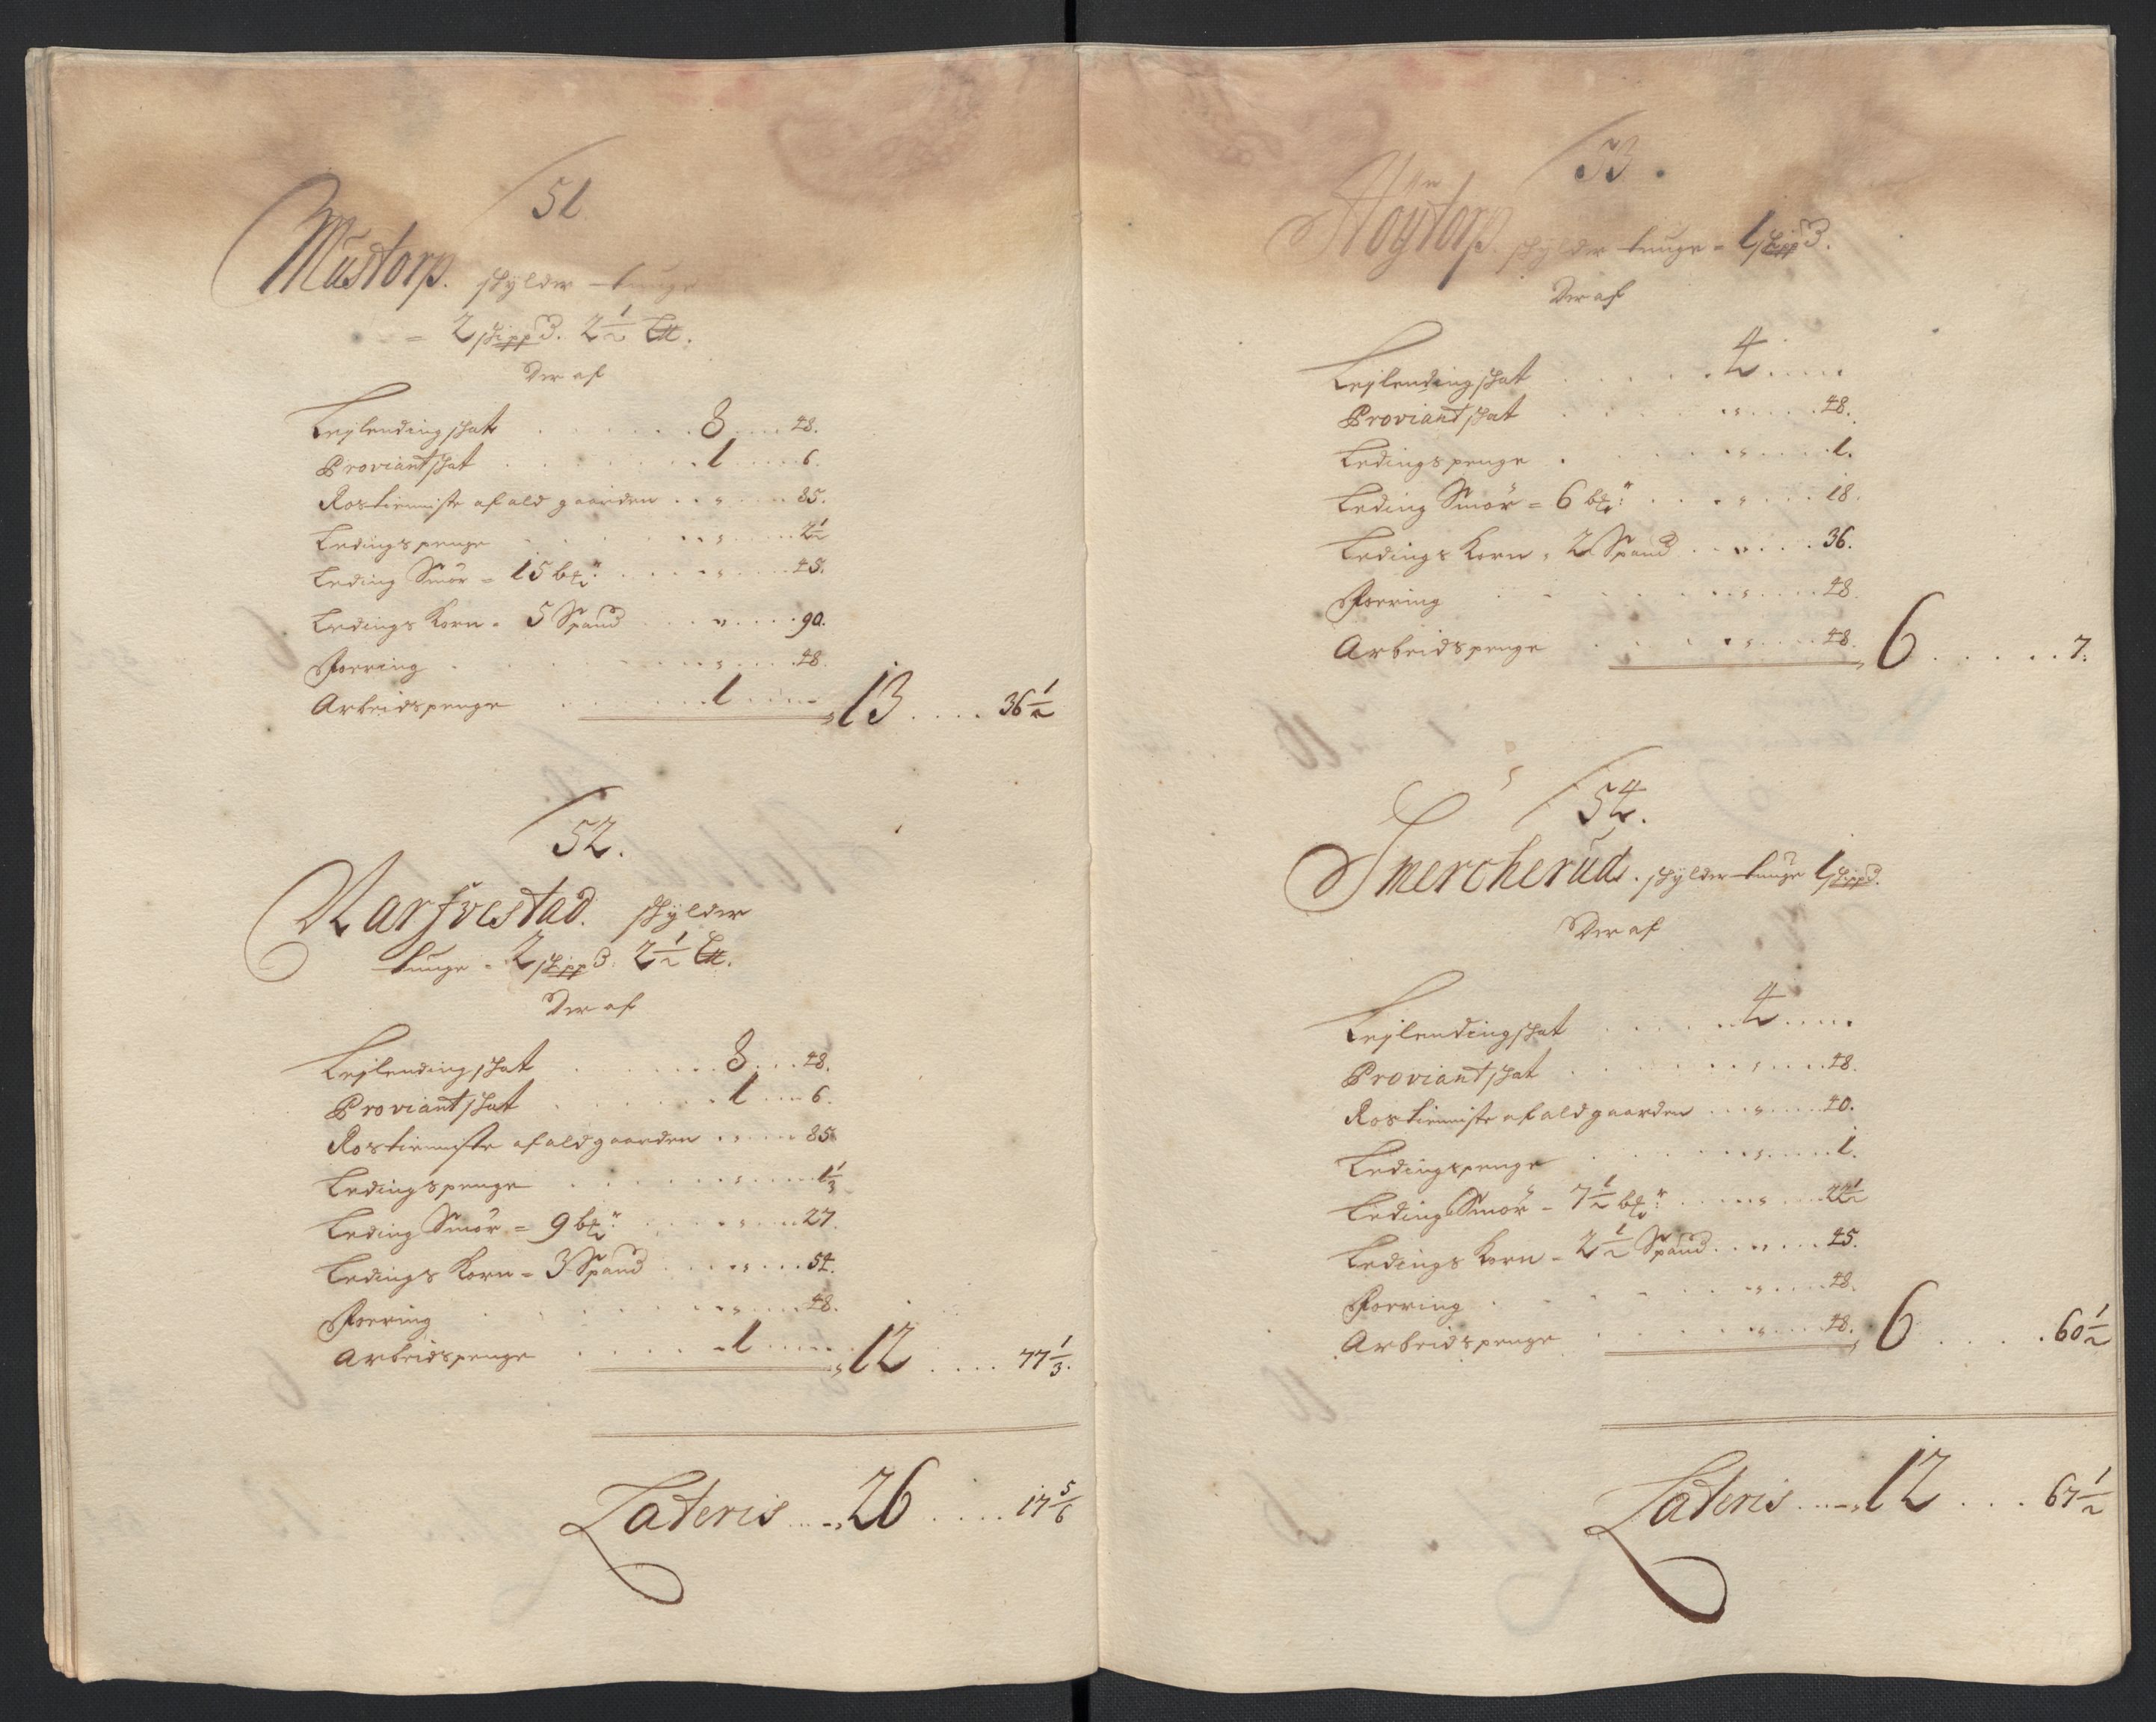 51
Mustorp. skylder tunge
= 2 skippd. 2½ L℔.
Der af
Leylendingskat . . . . . . 8 . . . 48.
Proviantskat . . . . . . . 1 . . . . 6.
Rostienniste af ald gaarden . . „ . . . . 85.
Ledingspenge . . . . . . . „ . . . . 2½
Leding Smör = 15 b℔r: . . . . „ . . . . 45.
Ledings Korn = 5 Spand . . . „ . . . . 90.
Foering . . . . . . . . „ . . . . 48.
Arbeidspenge . . . . . . 1 . . . . „ 13 . . . . 36½
52.
Narfvestad. skylder
tunge = 2 skippd. 2½ L℔.
Der af
Leylendingskat . . . . . . 8 . . . 48.
Proviantskat . . . . . . . 1 . . . 6.
Rostienniste af ald gaarden . . „ . . . 85
Ledingspenge . . . . . . . „ . . . . 1⅓
Leding Smör = 9 b℔r: . . . . „ . . . 27.
Ledings Korn = 3 Spand . . . . „ . . . 54.
Foering . . . . . . . . „ . . . 48.
Arbeidspenge . . . . . . 1 . . . . „ 12 . . . . 77⅓.
Lateris . . . „ 26 . . . . . 17⅚
53.
Höytorp. skylder tunge = 1 skippd.
Der af
Leylendingskat . . . . . . 4 . . . .
Proviantskat . . . . . . „ . . . . 48.
Ledingspenge . . . . . . „ . . . . 1.
Leding Smör = 6 b℔r: . . . „ . . . 18.
Ledings Korn = 2 Spand . . „ . . . . 36.
Foering . . . . . . . „ . . . . 48.
Arbeidspenge . . . . . . „ . . . . 48. „ 6 . . . . . 7.
54.
Smercherud. skylder tunge 1 skippd.
Der af
Leylendingskat . . . . . 4 . . . .
Proviantskat . . . . . . „ . . . . 48.
Rostienniste af ald gaarden . . . „ . . . . 40.
Ledingspenge . . . . . . „ . . . . . 1.
Leding Smör = 7½ b℔r: . . . . „ . . . 22½
Ledings Korn = 2½ Spand . . „ . . . 45.
Foering . . . . . . . „ . . . . 48.
Arbeidspenge . . . . . . „ . . . . 48. „ 6 . . . . . 60½
Lateris . . . „ 12 . . . . 67½